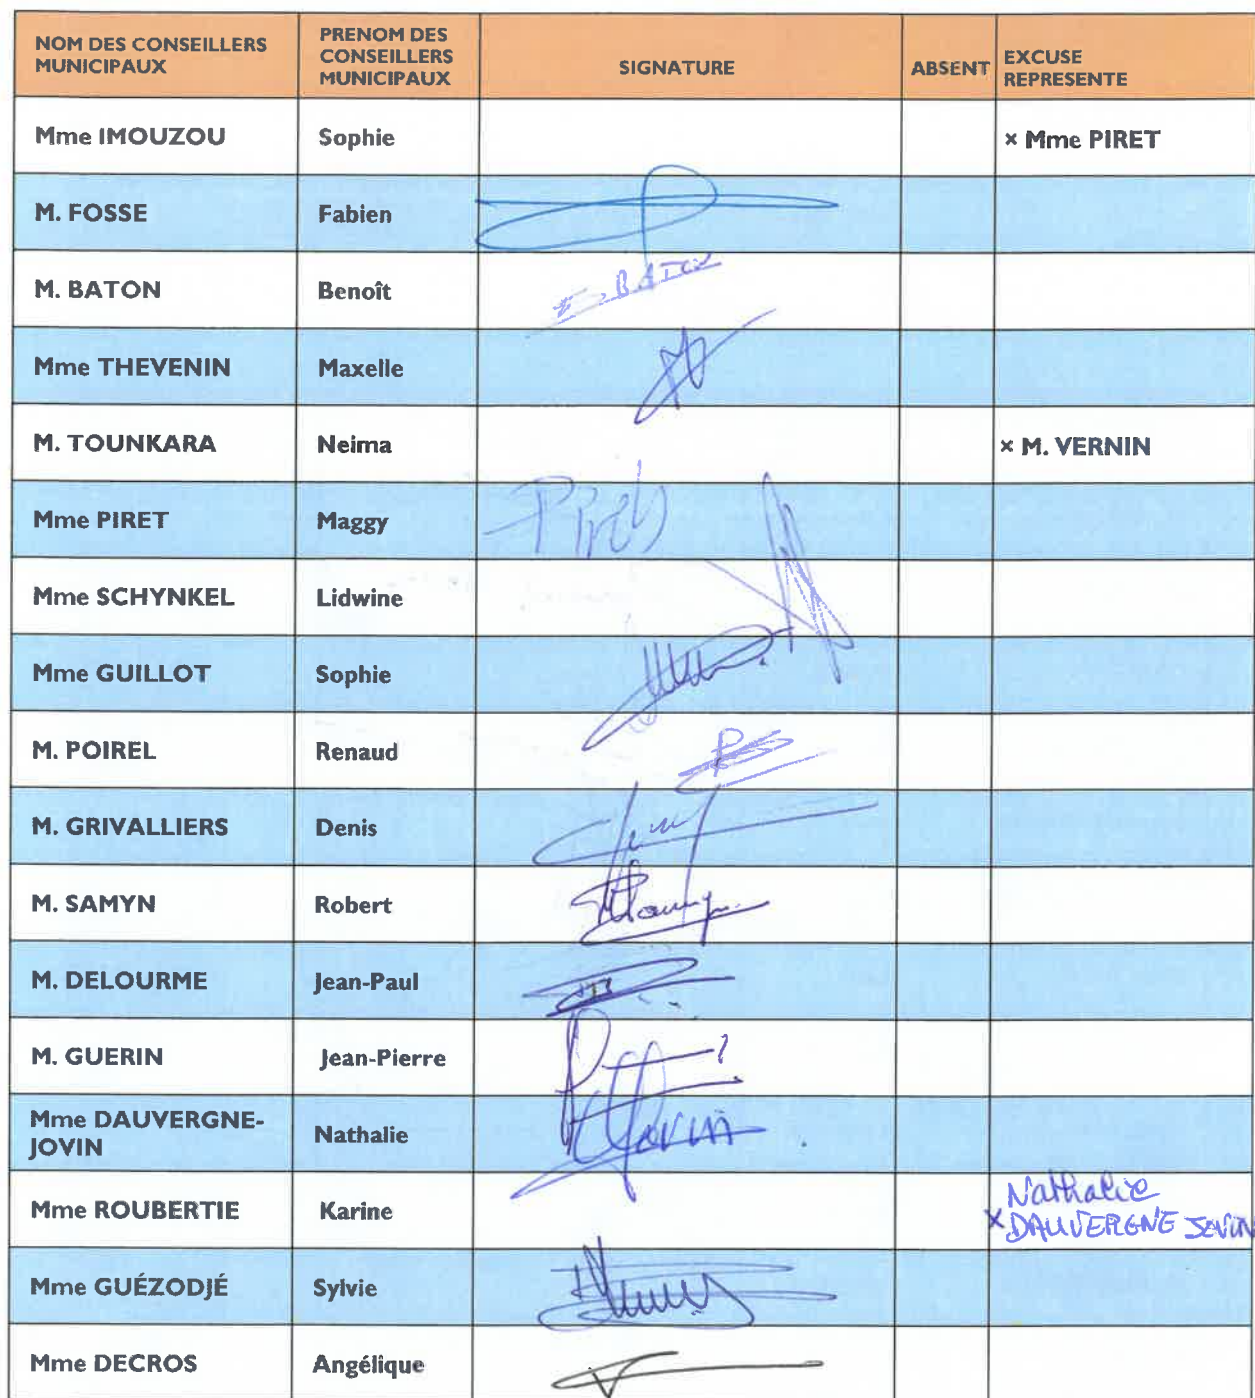 NOM DES CONSEILLERS
MUNICIPAUX
PRENOM DES
CONSEILLERS
MUNICIPAUX
SIGNATURE
ABSENT
EXCUSE
REPRESENTE
Mme IMOUZOU Sophie × Mme PIRET
M. FOSSE Fabien
M. BATON Benoît BATON
Mme THEVENIN Maxelle
M. TOUNKARA Neima × M. VERNIN
Mme PIRET Maggy Piret
Mme SCHYNKEL Lidwine
Mme GUILLOT Sophie
M. POIREL Renaud
M. GRIVALLIERS Denis
M. SAMYN Robert
M. DELOURME Jean-Paul
M. GUERIN Jean-Pierre
Mme DAUVERGNE-
JOVIN
Nathalie
Mme ROUBERTIE Karine
Nathalie
× DAUVERGNE JOVIN
Mme GUÉZODJÉ Sylvie
Mme DECROS Angélique